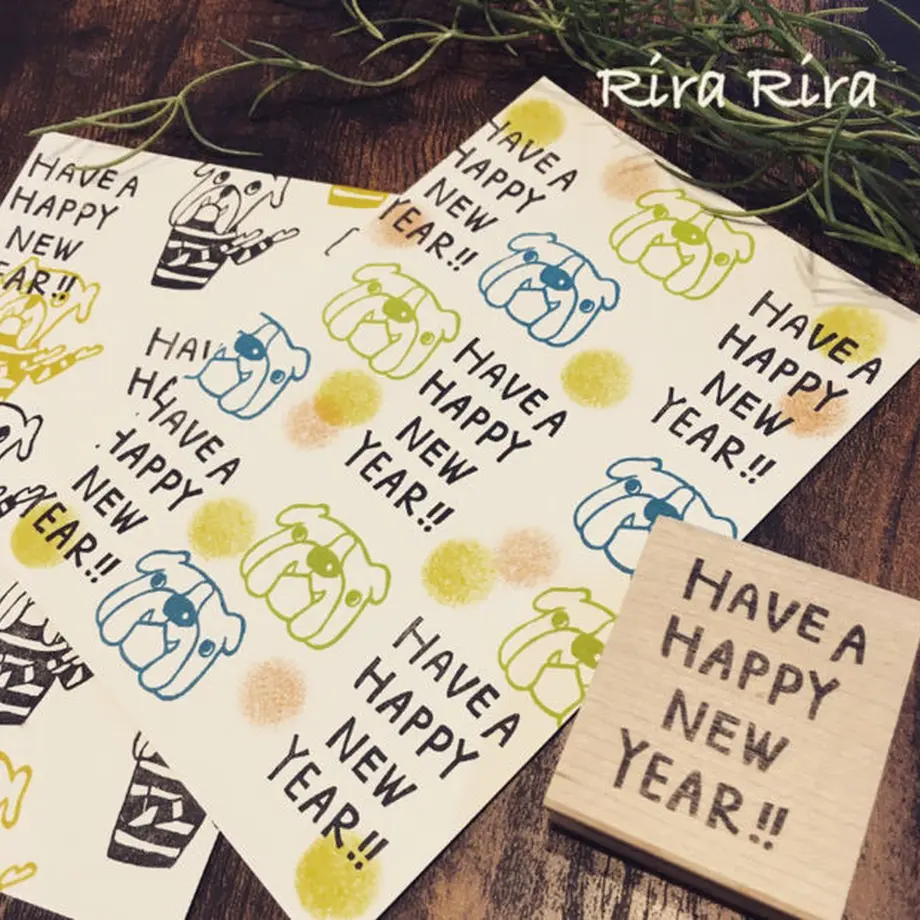 Rira Rira
HAVE A
HAPPY
NEW
YEAR!!
HAVE A
HAPPY
NEW
YEAR!!
HAVE A
HAPPY
NEW
YEAR!!
HAVE A
HAPPY
NEW
YEAR!!
HAVE A
HAPPY
NEW
YEAR!!
HAVE A
HAPPY
NEW
YEAR!!
HAVE A
HAPPY
NEW
YEAR!!